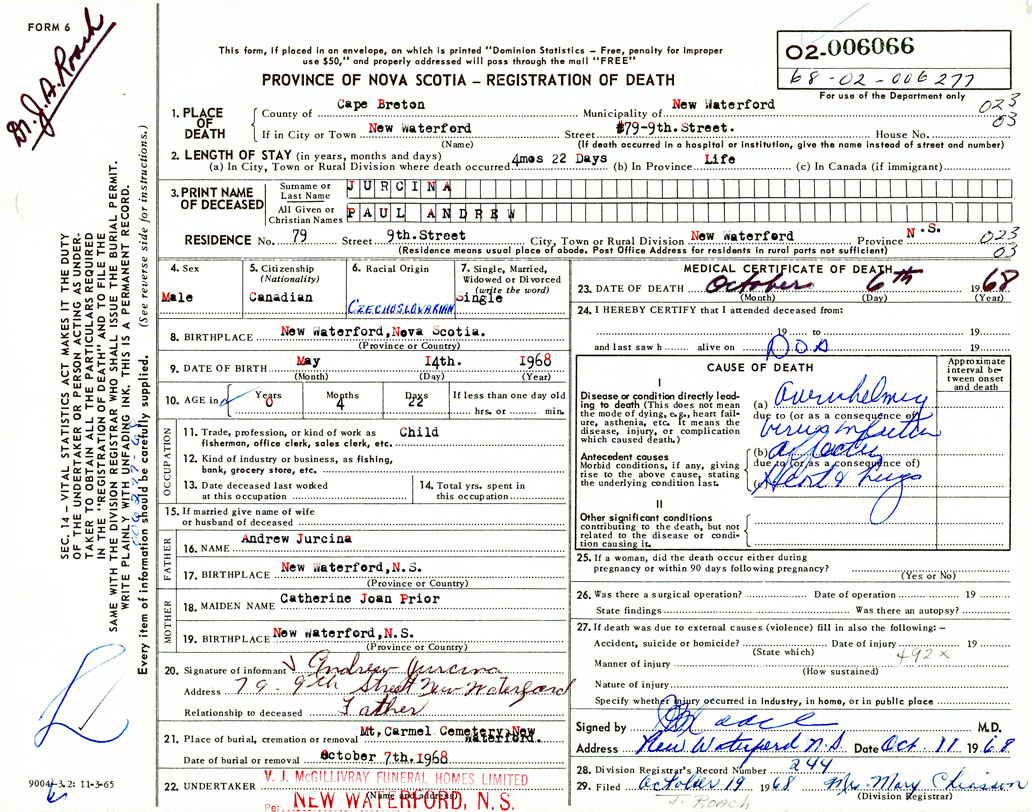 FORM 6
Dr. J. A. Roach
This form, if placed in an envelope, on which is printed "Dominion Statistics – Free, penalty for improper
use $50," and properly addressed will pass through the mail "FREE"
PROVINCE OF NOVA SCOTIA – REGISTRATION OF DEATH
02-006066
68-02-006277
For use of the Department only
023
03
1. PLACE OF DEATH
County of Cape Breton Municipality of New Waterford
If in City or Town New Waterford Street #79-9th.Street. House No.
(Name) (If death occurred in a hospital or institution, give the name instead of street and number)
2. LENGTH OF STAY (in years, months and days)
(a) In City, Town or Rural Division where death occurred 4mos 22 Days (b) In Province Life (c) In Canada (if immigrant)
3. PRINT NAME OF DECEASED
Surname or Last Name JURCINA
All Given or Christian Names PAUL ANDREW
RESIDENCE No. 79 Street 9th.Street City, Town or Rural Division New Waterford Province N.S.
(Residence means usual place of abode. Post Office Address for residents in rural parts not sufficient)
023
03
4. Sex
Male
5. Citizenship
(Nationality)
Canadian
6. Racial Origin
CZECHOSLOVAKIAN
7. Single, Married,
Widowed or Divorced
(write the word)
Single
8. BIRTHPLACE New Waterford,Nova Scotia.
(Province or Country)
9. DATE OF BIRTH May 14th. 1968
(Month) (Day) (Year)
10. AGE in
Years Months Days If less than one day old
0 4 22 hrs. or min.
OCCUPATION
11. Trade, profession, or kind of work as Child
fisherman, office clerk, sales clerk, etc.
12. Kind of industry or business, as fishing,
bank, grocery store, etc.
13. Date deceased last worked
at this occupation
14. Total yrs. spent in
this occupation
15. If married give name of wife
or husband of deceased
FATHER
16. NAME Andrew Jurcina
17. BIRTHPLACE New Waterford,N.S.
(Province or Country)
MOTHER
18. MAIDEN NAME Catherine Joan Prior
19. BIRTHPLACE New Waterford,N.S.
(Province or Country)
20. Signature of informant Andrew Jurcina
Address 79-9th Street New Waterford
Relationship to deceased Father
21. Place of burial, cremation or removal Mt, Carmel Cemetery,New
Waterford.
Date of burial or removal October 7th.1968
22. UNDERTAKER V. J. McGILLIVRAY FUNERAL HOMES LIMITED
(Name and address)
NEW WATERFORD, N. S.
MEDICAL CERTIFICATE OF DEATH
23. DATE OF DEATH October 6th 1968
(Month) (Day) (Year)
24. I HEREBY CERTIFY that I attended deceased from:
19 to 19
and last saw h alive on DOA 19
CAUSE OF DEATH
Approximate
interval be-
tween onset
and death
I
Disease or condition directly lead-
ing to death (This does not mean
the mode of dying, e.g., heart fail-
ure, asthenia, etc. It means the
disease, injury, or complication
which caused death.)
(a) Overwhelming
due to (or as a consequence of)
virus infection
Antecedent causes
Morbid conditions, if any, giving
rise to the above cause, stating
the underlying condition last.
(b) affecting
due to (or as a consequence of)
(c) Heart & Lungs
II
Other significant conditions
contributing to the death, but not
related to the disease or condi-
tion causing it.
25. If a woman, did the death occur either during
pregnancy or within 90 days following pregnancy?
(Yes or No)
26. Was there a surgical operation? Date of operation 19
State findings Was there an autopsy?
27. If death was due to external causes (violence) fill in also the following: –
Accident, suicide or homicide? Date of injury 19
(State which)
492X
Manner of injury
(How sustained)
Nature of injury
Specify whether injury occurred in Industry, in home, or in public place
Signed by JARoach M.D.
Address New Waterford N.S Date Oct. 11 1968
28. Division Registrar's Record Number 244
29. Filed October 19 1968 Mrs. Mary Chiasson
(Division Registrar)
J. ROACH
SEC. 14 – VITAL STATISTICS ACT MAKES IT THE DUTY
OF THE UNDERTAKER OR PERSON ACTING AS UNDER-
TAKER TO OBTAIN ALL THE PARTICULARS REQUIRED
IN THE "REGISTRATION OF DEATH" AND TO FILE THE
SAME WITH THE DIVISION REGISTRAR WHO SHALL ISSUE THE BURIAL PERMIT.
WRITE PLAINLY WITH UNFADING INK. THIS IS A PERMANENT RECORD.
Every item of information should be carefully supplied. (See reverse side for instructions.)